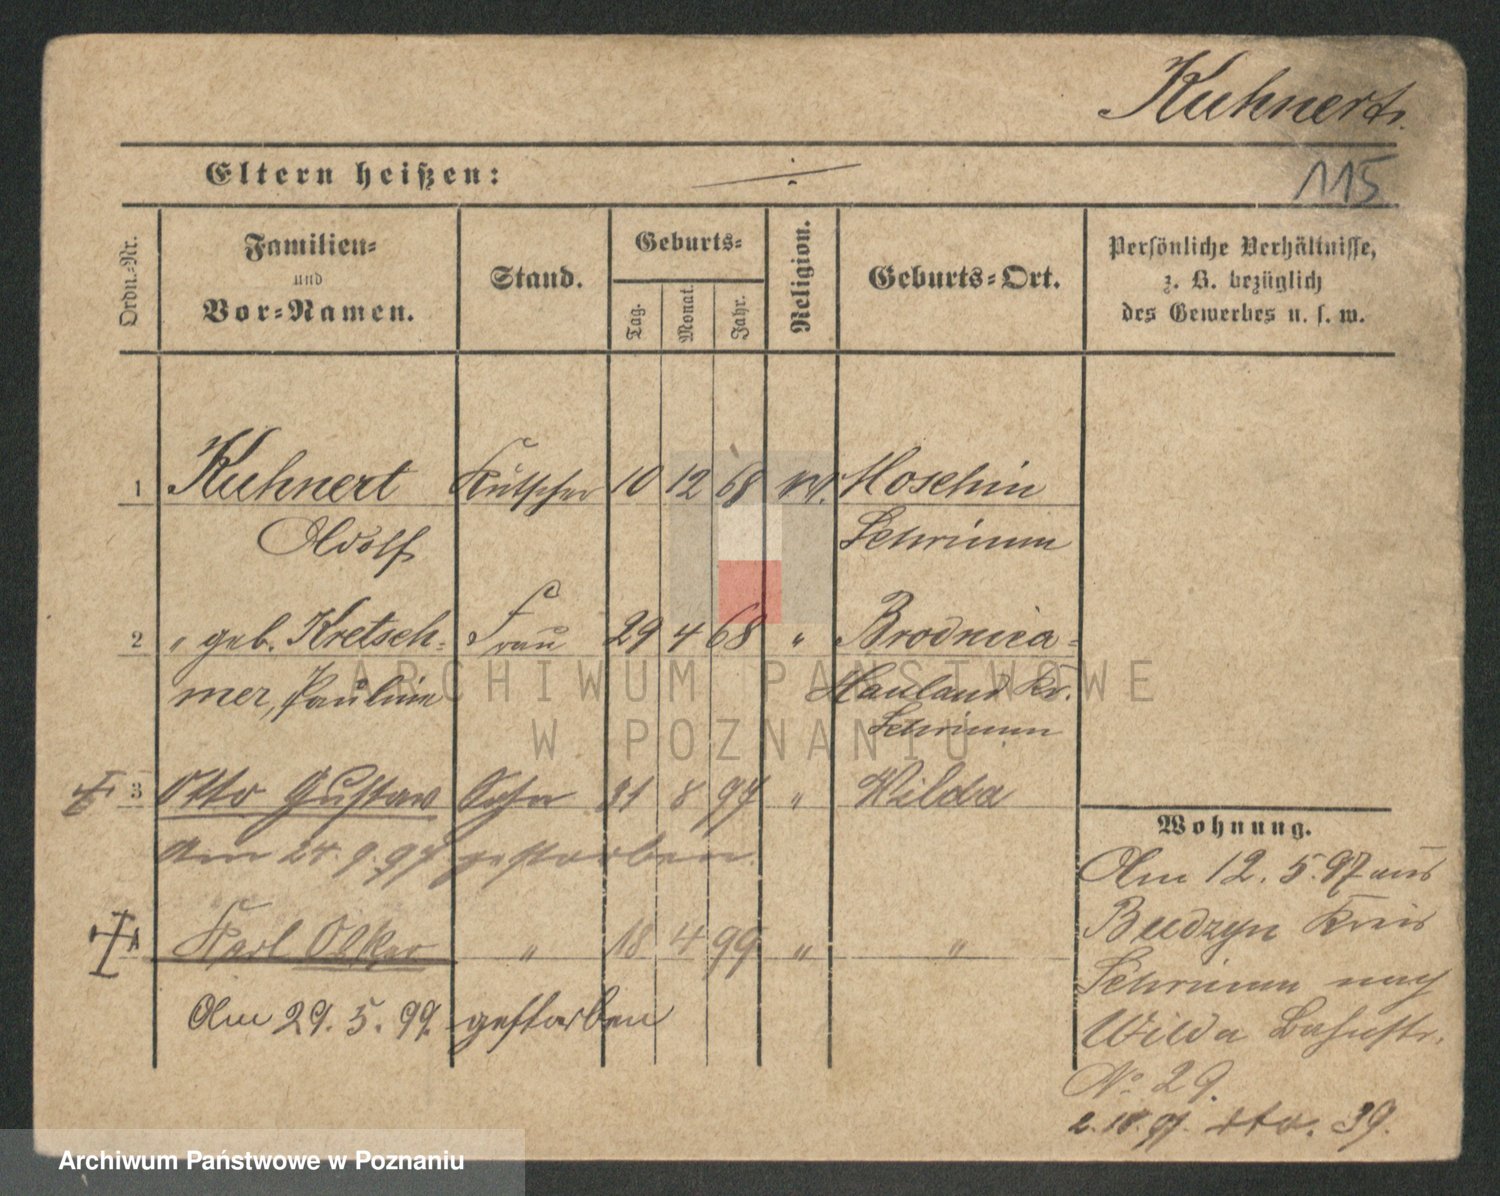 Kuhnert.
Eltern heißen: ÷
115
Ordn.-Nr.
Familien-
und
Vor-Namen.
Stand.
Geburts-
Tag.
Monat.
Jahr.
Religion.
Geburts-Ort.
Persönliche Verhältnisse,
z. B. bezüglich
des Gewerbes u. s. w.
1 Kuhnert Kutscher 10 12 68 Moschin
Adolf Schrimm
2 " geb. Kretsch- Frau 29 4 68 " Brodnica-
mer, Pauline Hauland Kr.
Schrimm
3 Otto Gustav Sohn 31 8 97 " Wilda
Am 24.9.97 gestorben.
Karl Oskar " 18 4 99 " "
Am 29.5.99. gestorben
Wohnung.
Am 12.5.97 aus
Budzyn Kreis
Schrimm nach
Wilda Bahnstr.
No. 29.
2.10.97. dto. 39.
ARCHIWUM PAŃSTWOWE
W POZNANIU
Archiwum Państwowe w Poznaniu